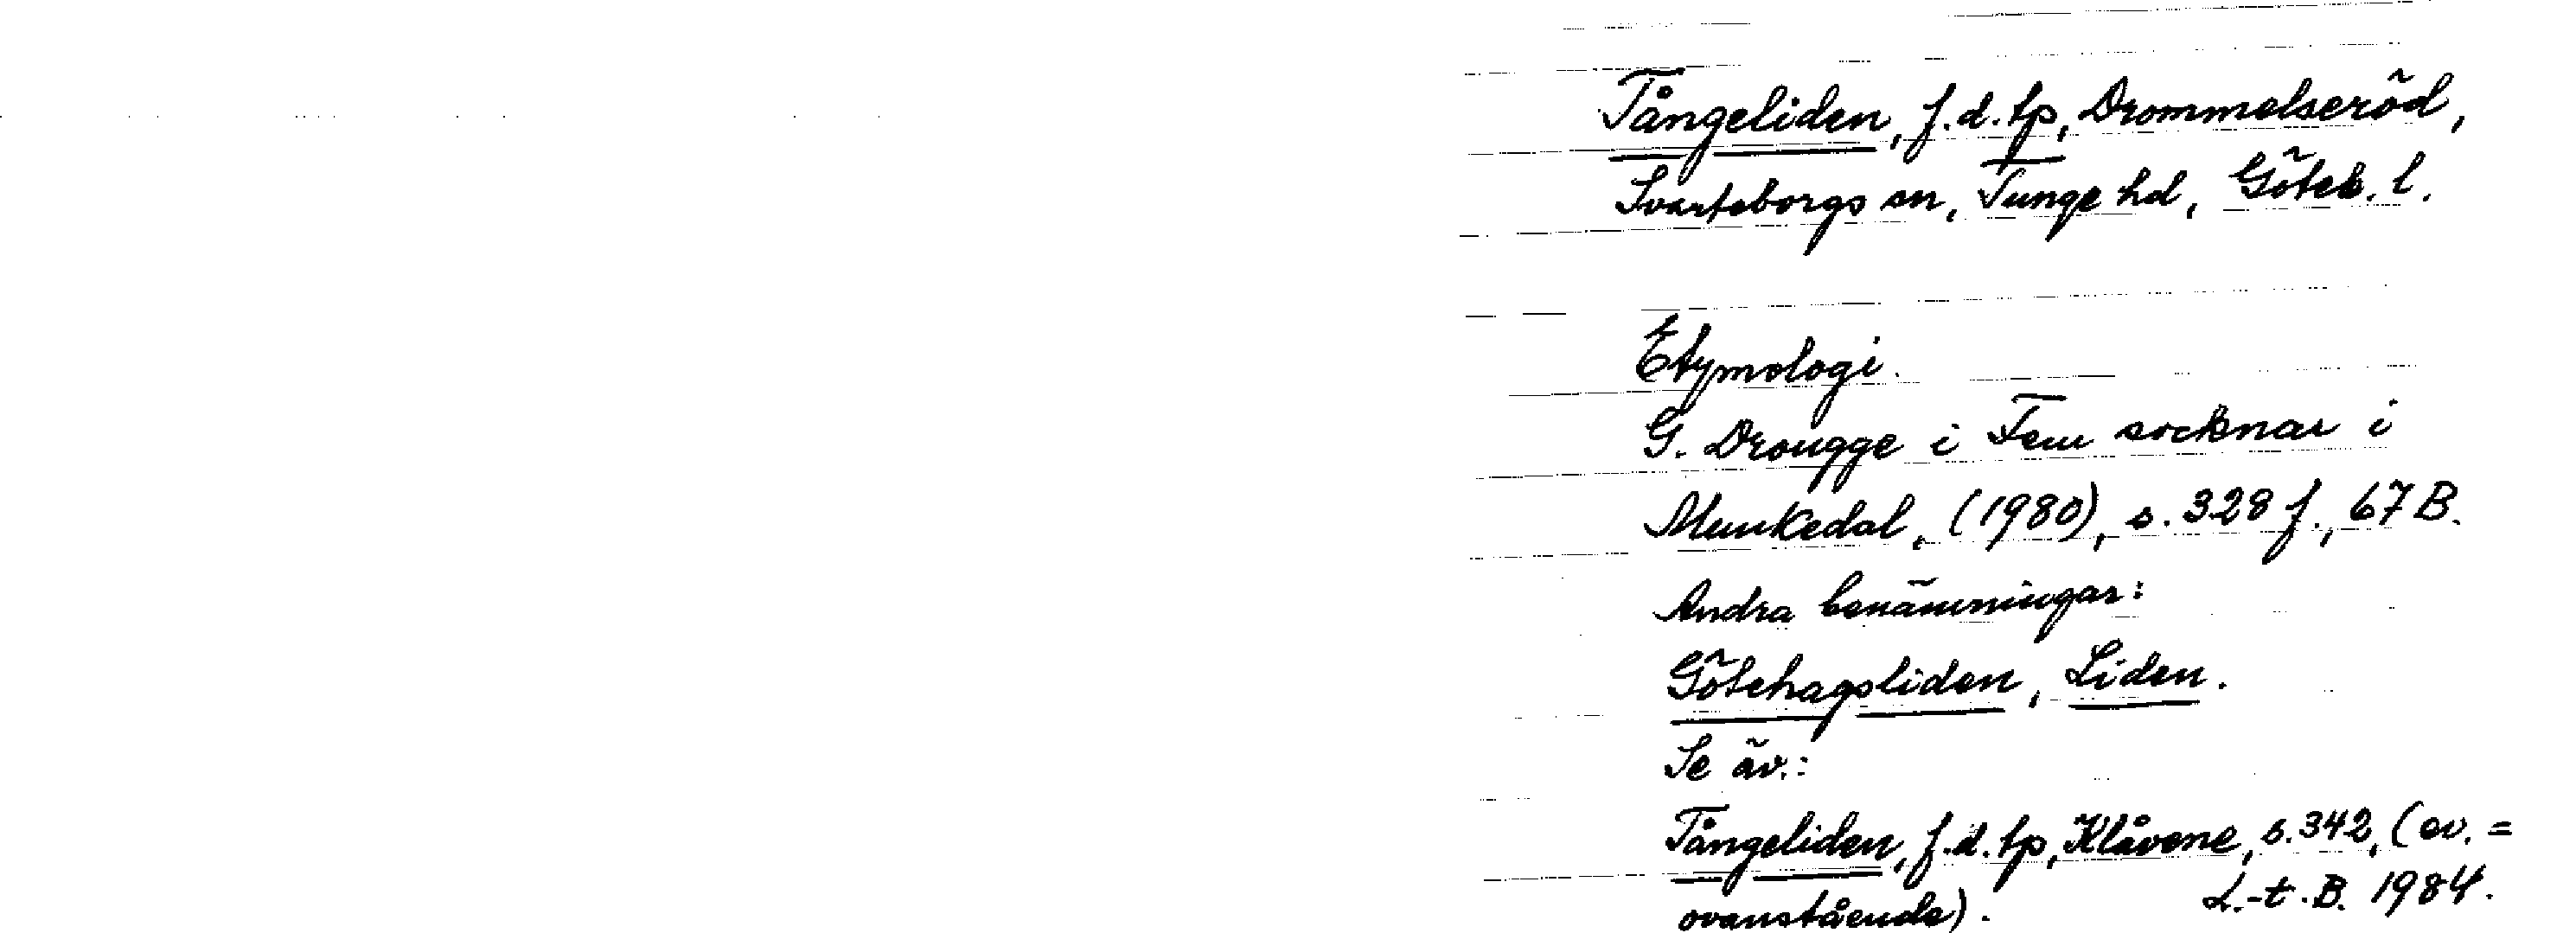 Tångeliden, f.d. tp, Drommelseröd,
Svarteborgs sn, Tunge hd, Göteb. l.
Etymologi.
G. Drougge i Fem socknar i
Munkedal, (1980), s. 328 f., 67 B.
Andra benämningar:
Götehagsliden, Liden.
Se äv.:
Tångeliden, f.d. tp, Klåvene, s. 342, (ev. =
ovanstående).
L.-t. B. 1984.